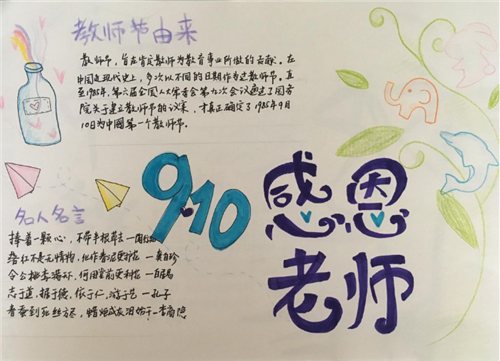 教师节由来
教师节，旨在肯定教师为教育事业所做的贡献。在
中国近现代史上，多次以不同的日期作为过教师节。直
至1985年，第六届全国人大常委会第九次会议通过了国务
院关于建立教师节的议案，才真正确定了1985年9月
10日为中国第一个教师节。
9.10
感恩
老师
名人名言
捧着一颗心，不带半根草去一陶行知
落红不是无情物，化作春泥更护花 一龚自珍
令公桃李满 何用堂前更种花 一白居易
志于道，据于德，依于仁，游于艺 一孔子
春蚕到死丝方尽，蜡炬成灰泪始干一李商隐